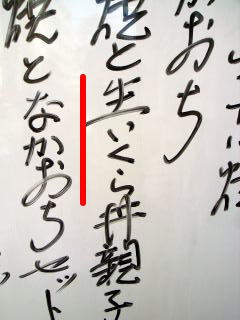 かおち
焼と生いくら丼親子
焼となかおちセット